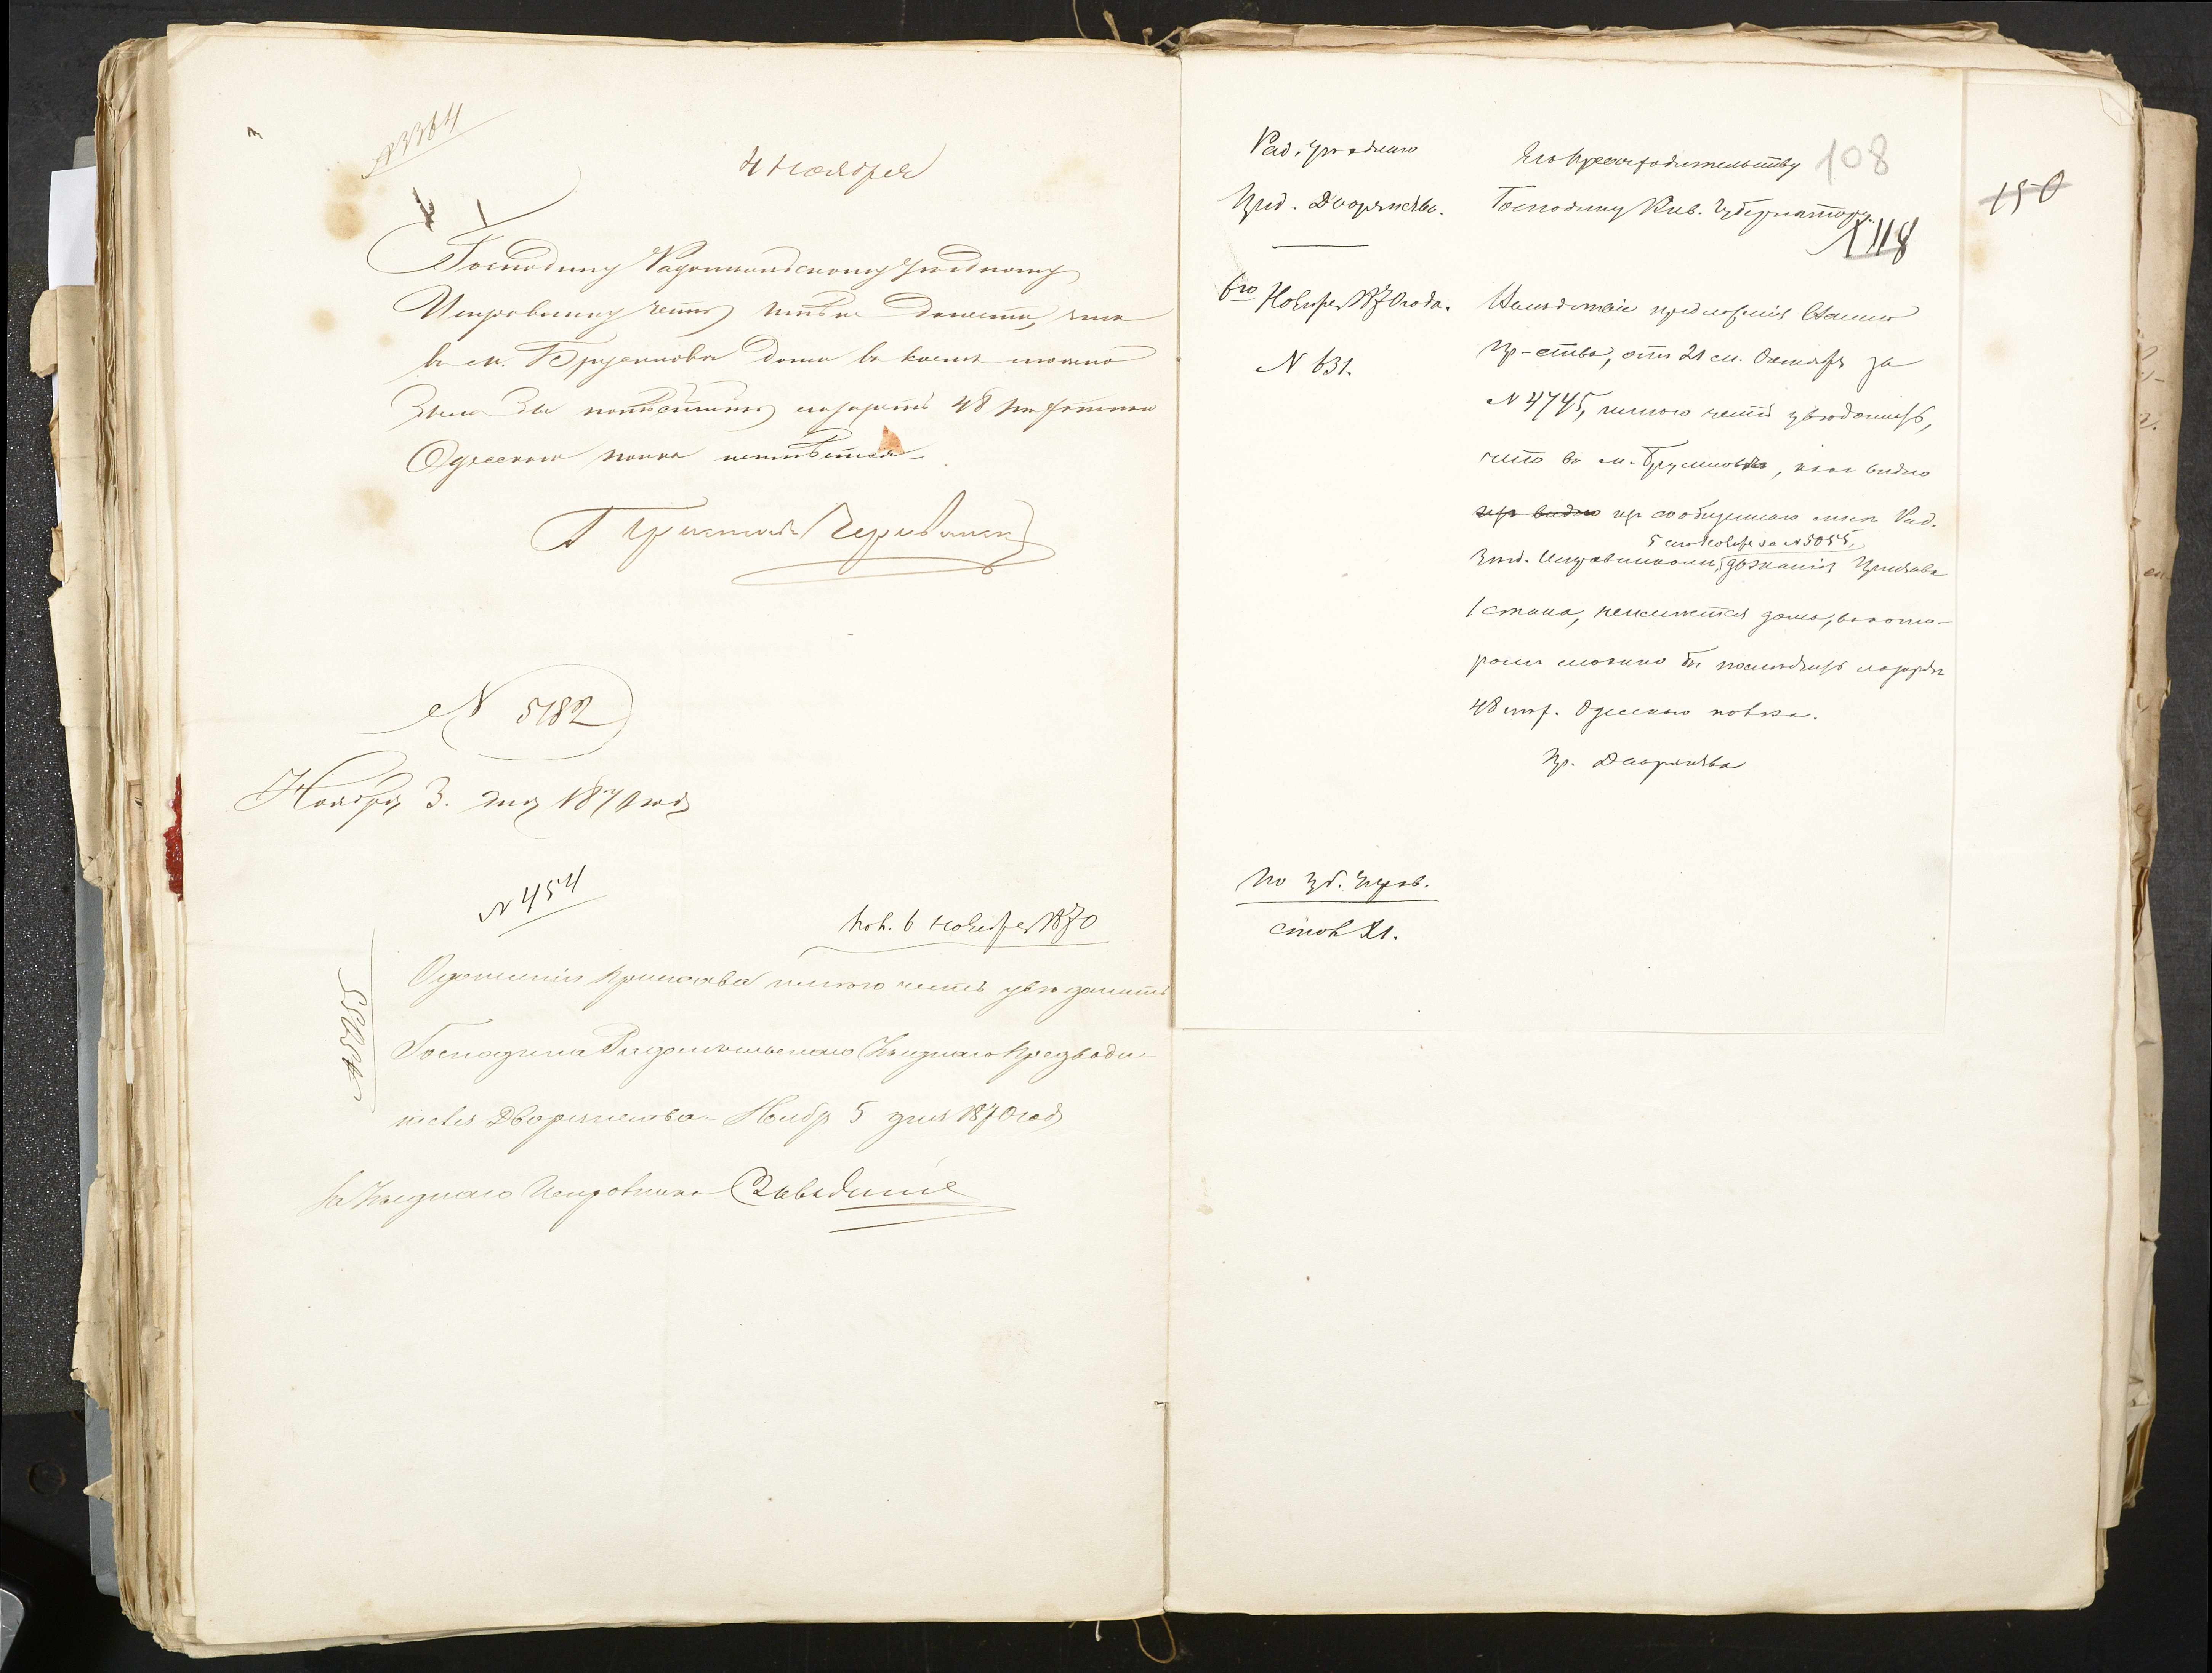 № 3364
4 Ноября
Господину Радомысльскому Уѣздному
Исправнику честь имѣю донести, что
въ м. Брусиловѣ дома въ коемъ можно
было бы помѣстить лазаретъ 48 пѣхотнаго
Одесскаго полка неимѣется
Приставъ
№ 5182
Ноября 3. дня 1870 года
№ 454
Пол. 6 Ноября 1870
О донесеніи Пристава имѣю честь увѣдомить
Господина Радомысльскаго Уѣзднаго Предводи-
теля Дворянства. Ноября 5 дня 1870 года
За Уѣзднаго Исправника
№ 5055
Рад. Уѣзднаго
Пред. Дворянства.
6го Ноября 1870 года.
№ 631.
Его Превосходительству
Господину Кiев. Губернатору.
108
118
150
Вслѣдствіе предложенія Вашего
Пр-ства, отъ 21 м. Октября за
№ 4745, имѣю честь увѣдомить,
что въ м. Брусиловѣ, какъ видно
изъ видно изъ сообщеннаго мнѣ Рад.
5 сего Ноября за № 5055,
Уѣзд. Исправникомъ, дознанія Пристава
1 стана, неимѣется дома, въ кото-
ромъ можно бы помѣстить лазаретъ
48 пѣх. Одесскаго полка.
Пр. Дворянства
По Губ. Управ.
стол XI.